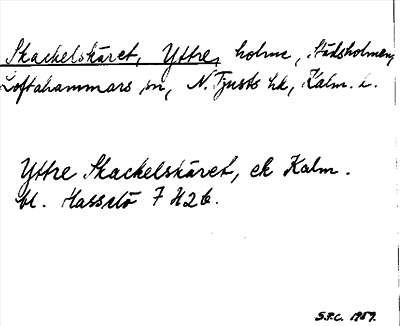 Skackelskäret, Yttre, holme, Städsholmen,
Loftahammars sn, N. Tjusts hd, Kalm. l.
Yttre Skackelskäret, ek Kalm.
bl. Hasselö 7 H2b.
S.F.C. 1959.